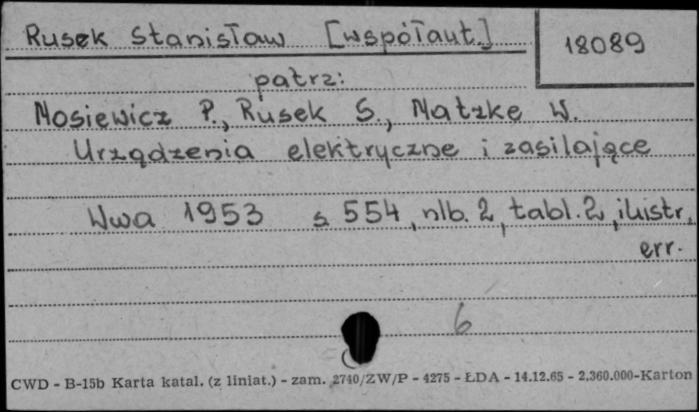 Rusek Stanisław [współaut.]
18089
patrz:
Mosiewicz P., Rusek S., Matzke W.
Urządzenia elektryczne i zasilające
Wwa 1953 s 554, nlb. 2, tabl. 2, ilustr.,
err.
6
CWD - B-15b Karta katal. (z liniat.) - zam. 2740/ZW/P - 4275 - ŁDA - 14.12.65 - 2.360.000-Karton